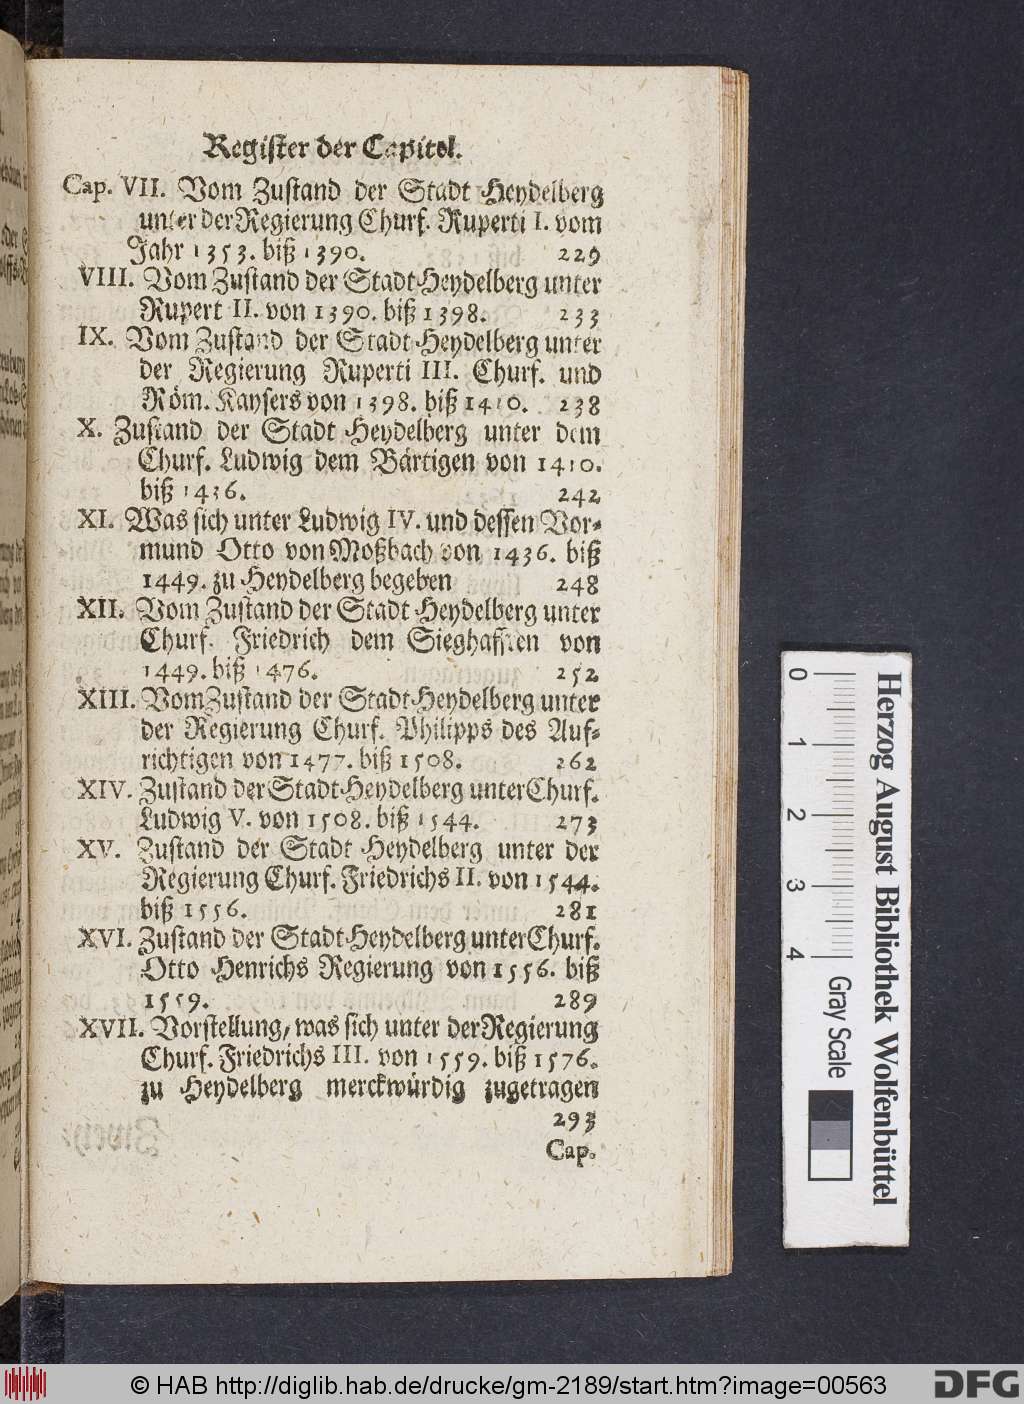 Register der Capitel.
Cap. VII. Vom Zustand der Stadt Heydelberg
unter der Regierung Churf. Ruperti I. vom
Jahr 1353. biß 1390. 229
VIII. Vom Zustand der Stadt Heydelberg unter
Rupert II. von 1390. biß 1398. 233
IX. Vom Zustand der Stadt Heydelberg unter
der Regierung Ruperti III. Churf. und
Röm. Kaysers von 1398. biß 1410. 238
X. Zustand der Stadt Heydelberg unter dem
Churf. Ludwig dem Bärtigen von 1410.
biß 1436. 242
XI. Was sich unter Ludwig IV. und dessen Vor-
mund Otto von Moßbach von 1436. biß
1449. zu Heydelberg begeben 248
XII. Vom Zustand der Stadt Heydelberg unter
Churf. Friedrich dem Sieghafften von
1449. biß 1476. 252
XIII. Vom Zustand der Stadt Heydelberg unter
der Regierung Churf. Philipps des Auf-
richtigen von 1477. biß 1508. 262
XIV. Zustand der Stadt Heydelberg unter Churf.
Ludwig V. von 1508. biß 1544. 273
XV. Zustand der Stadt Heydelberg unter der
Regierung Churf. Friedrichs II. von 1544.
biß 1556. 281
XVI. Zustand der Stadt Heydelberg unter Churf.
Otto Henrichs Regierung von 1556. biß
1559. 289
XVII. Vorstellung, was sich unter der Regierung
Churf. Friedrichs III. von 1559. biß 1576.
zu Heydelberg merckwürdig zugetragen
293
Cap.
Herzog August Bibliothek Wolfenbüttel
0 1 2 3 4
Gray Scale
© HAB http://diglib.hab.de/drucke/gm-2189/start.htm?image=00563
DFG